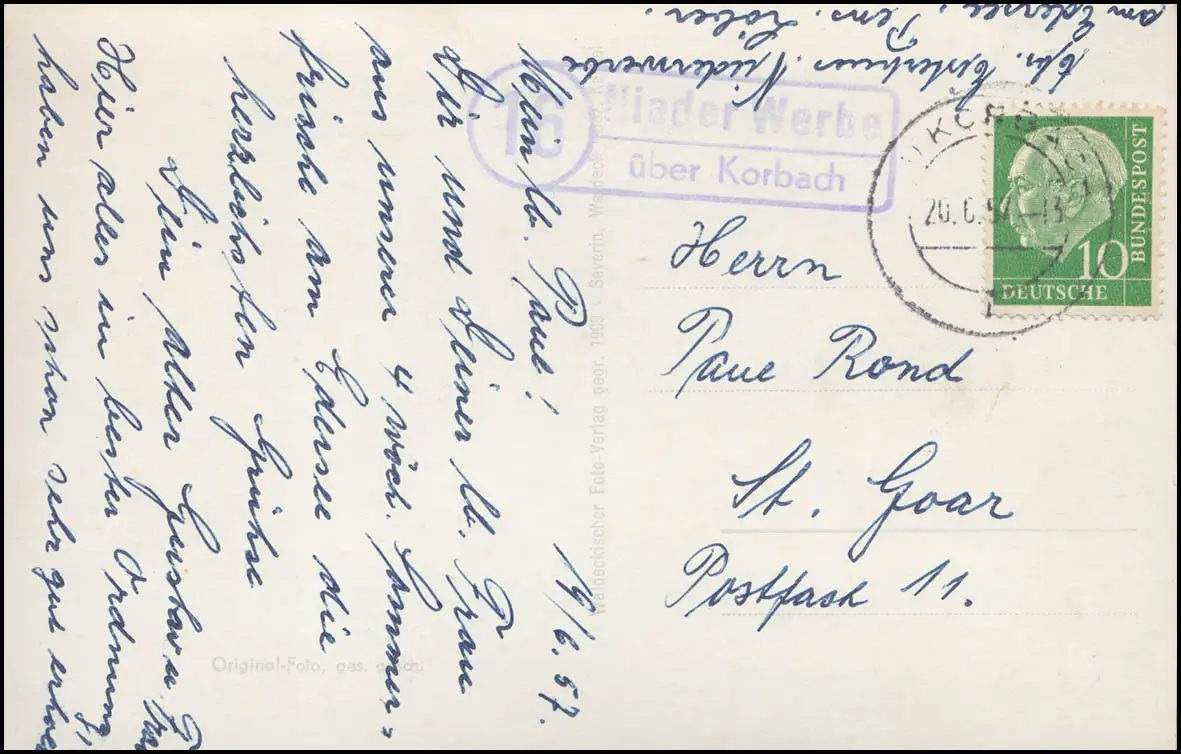 Abs. Niederwerbe
am Edersee, Pens.
16
Nieder Werbe
über Korbach
KORBACH
20.6.57-13
1
10
DEUTSCHE
BUNDESPOST
Herrn
Paul Rond
St. Goar
Postfach 11.
19/6.57.
Mein lb. Paul!
Dir und Deiner lb. Frau
aus unserer 4 wöch. Sommer=
frische am Edersee die
herzlichsten Grüße
Dein alter Gustav u. Frau
Hier alles in bester Ordnung,
haben uns schon sehr gut erholt
Waldeckischer Foto-Verlag gegr. 1909 · Severin, Waldeck Bez. Kassel
Original-Foto, ges. gesch.